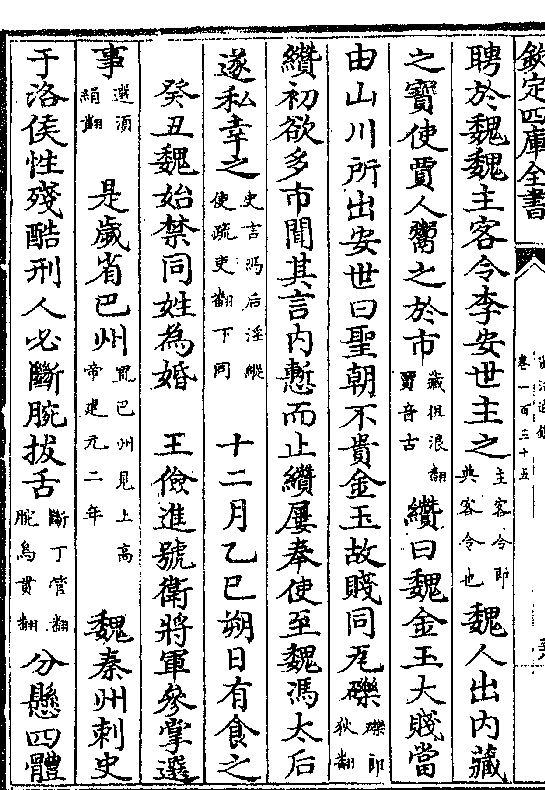 欽定四庫全書
卷一百三十五
聘於魏魏主客令李安世主之主客令即典客令也魏人出内藏
之寶使賈人鬻之於市藏徂浪翻賈音古纘曰魏金玉大賤當
由山川所出安世曰聖朝不貴金玉故賤同瓦礫礫郎狄翻
纘初欲多市聞其言内慙而止纘屢奉使至魏馮太后
遂私幸之史言馮后淫縱使疏吏翻下同 十二月乙巳朔日有食之
癸丑魏始禁同姓為婚 王儉進號衛將軍參掌選
事選須絹翻 是歲省巴州置巴州見上高帝建元二年 魏秦州刺史
于洛侯性殘酷刑人必斷腕拔舌斷丁管翻腕烏貫翻分懸四體